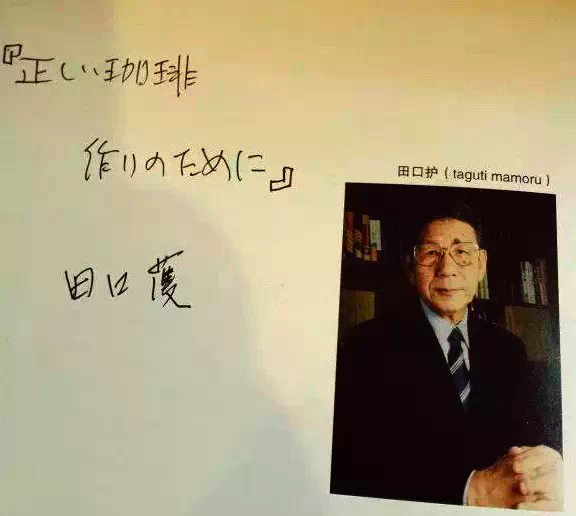 『正しい珈琲
作りのために』
田口護
田口护（taguti mamoru）